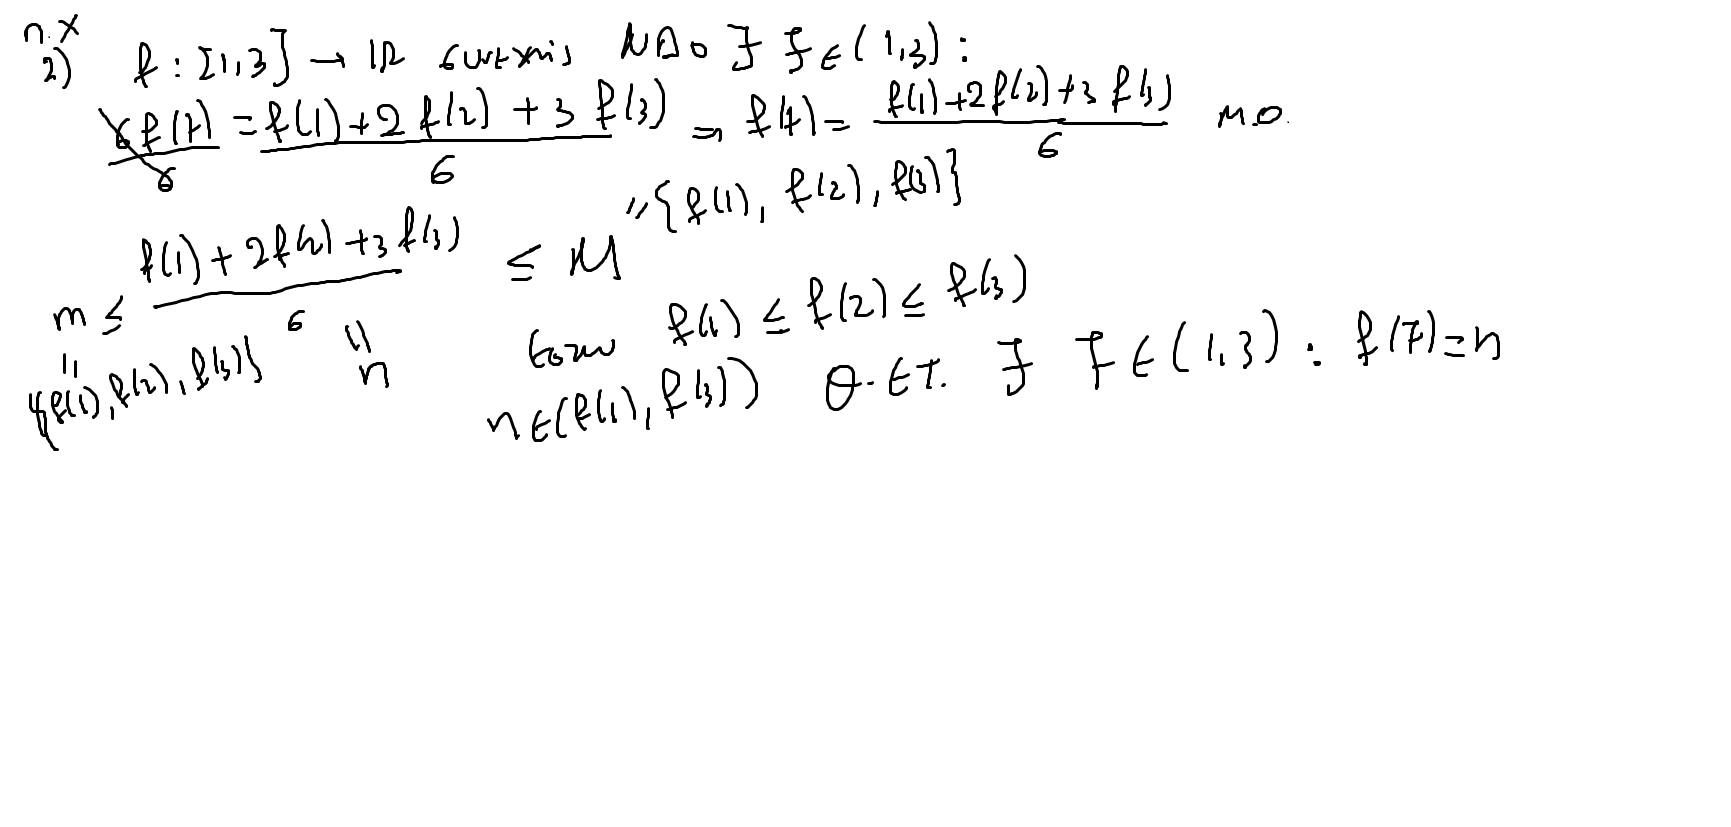 π.χ
2) f : [1,3] → ℝ συνεχής ΝΔο ∃ ξ ∈ (1,3) :
6f(ξ)/6 = f(1)+2f(2)+3f(3)/6 ⇒ f(ξ) = f(1)+2f(2)+3f(3)/6 Μ.Ο.
m ≤ f(1)+2f(2)+3f(3)/6 ≤ M " {f(1), f(2), f(3)}
" {f(1), f(2), f(3)} " η
Έστω f(1) ≤ f(2) ≤ f(3)
η ∈ (f(1), f(3)) Θ.ΕΤ. ∃ ξ ∈ (1,3) : f(ξ) = η